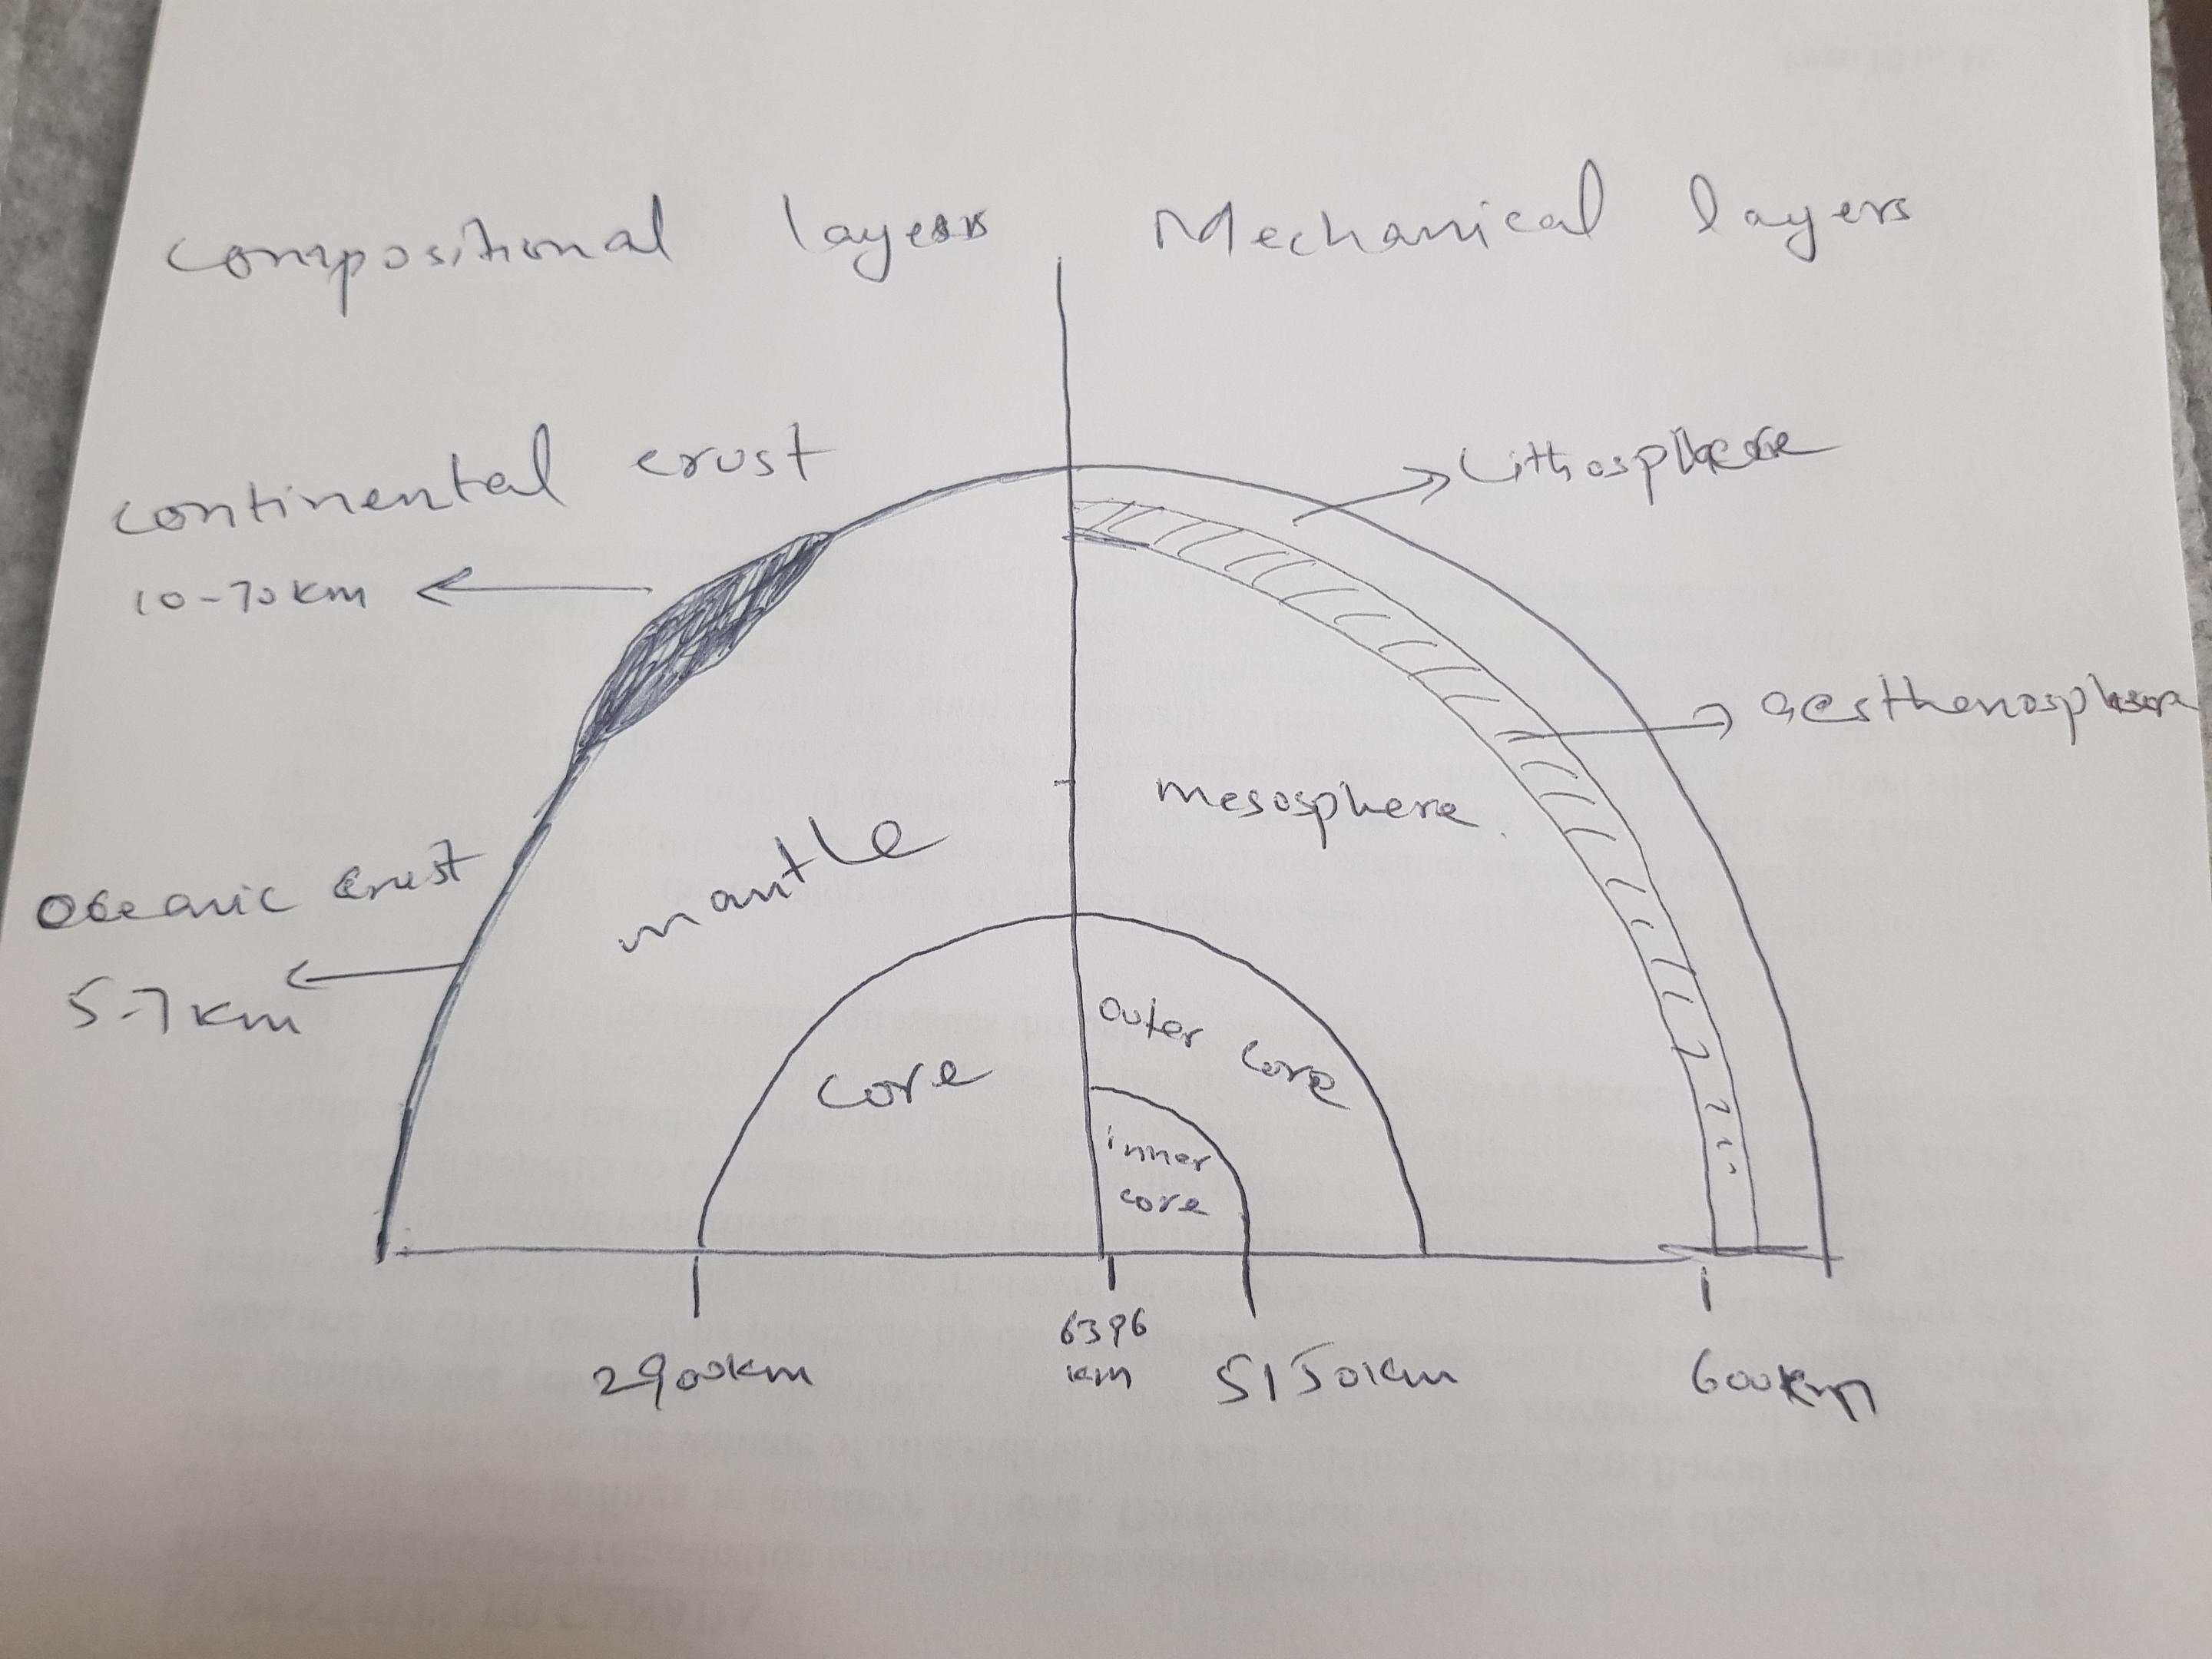 compositional layers Mechanical layers
continental crust
10-70km
Lithosphere
aesthenosphere
mesosphere
mantle
Oceanic crust
5-7km
outer core
core
inner
core
2900km
6396
km
5150km
600km